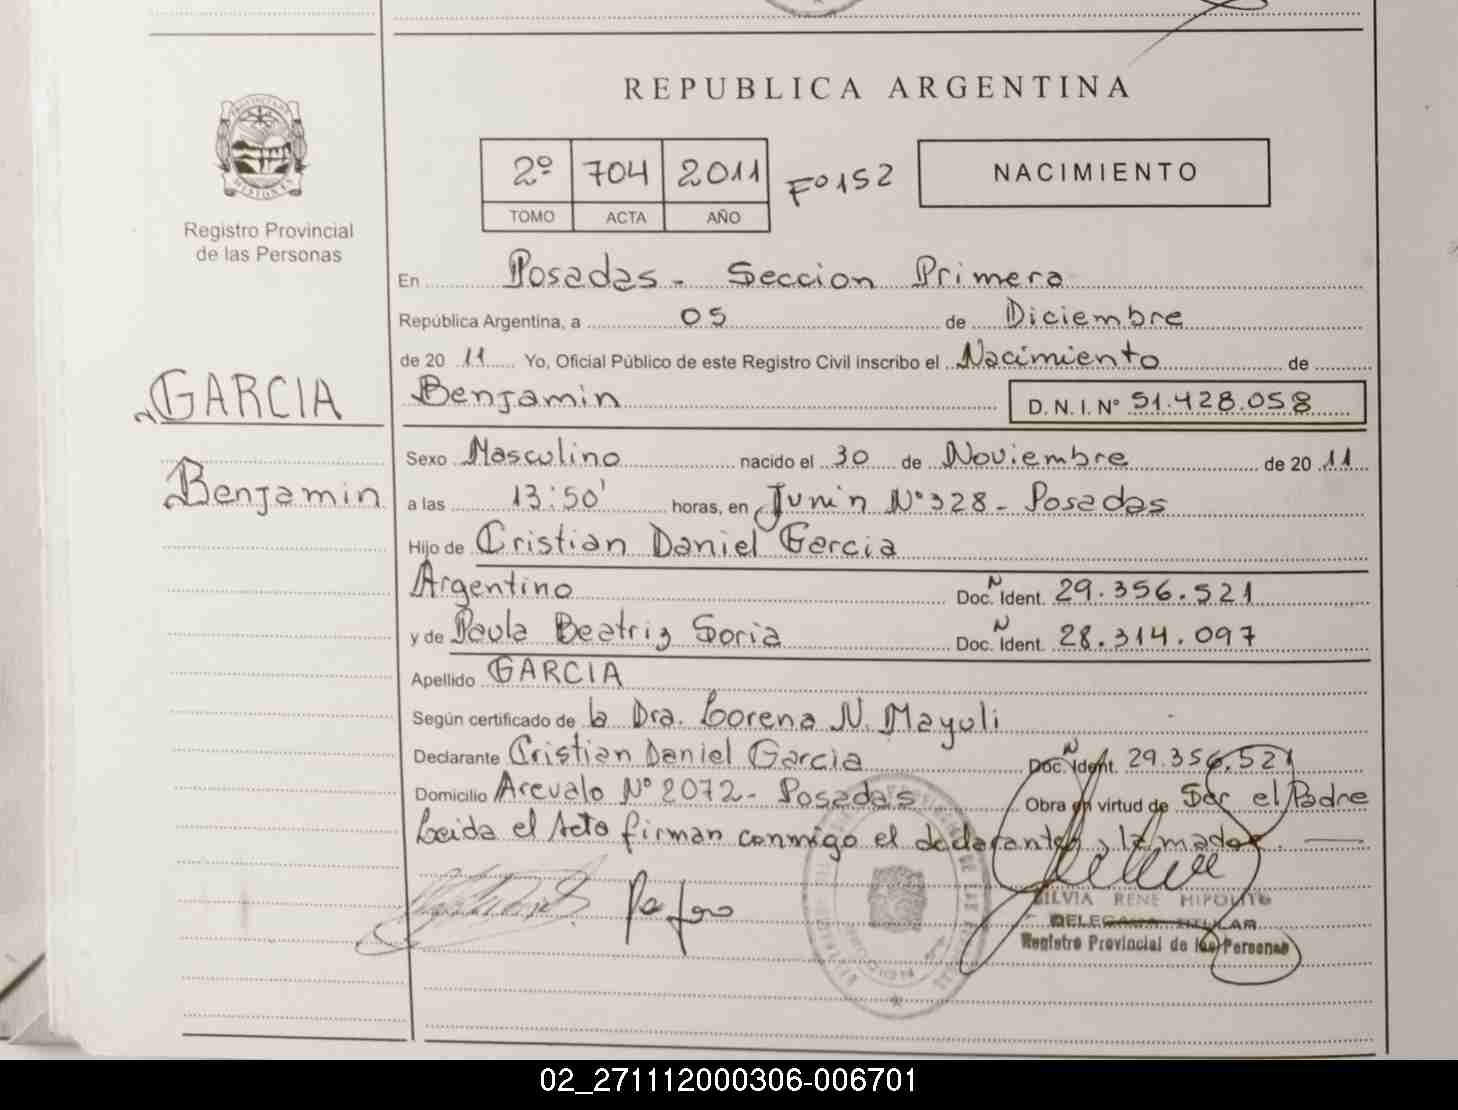 REPUBLICA ARGENTINA
PROVINCIA DE MISIONES
Registro Provincial
de las Personas
2º 704 2011 Fº152
TOMO ACTA AÑO
NACIMIENTO
En Posadas - Seccion Primera
República Argentina, a 05 de Diciembre
de 20 11 Yo, Oficial Público de este Registro Civil inscribo el Nacimiento de
GARCIA
Benjamin
Benjamin D. N. I. Nº 51.428.058
Sexo Masculino nacido el 30 de Noviembre de 20 11
a las 13:50' horas, en Junin Nº 328 - Posadas
Hijo de Cristian Daniel Garcia
Argentino Doc. Ident. 29.356.521
y de Paula Beatriz Soria Doc. Ident. 28.314.097
Apellido GARCIA
Según certificado de la Dra. Lorena N. Mayuli
Declarante Cristian Daniel Garcia Doc. Ident. 29.356.521
Domicilio Arevalo Nº 2072 - Posadas Obra en virtud de Ser el Padre
Leida el Acta firman conmigo el declarante y la madre.
SILVIA RENE HIPOLITO
DELEGADA TITULAR
Registro Provincial de las Personas
02_271112000306-006701